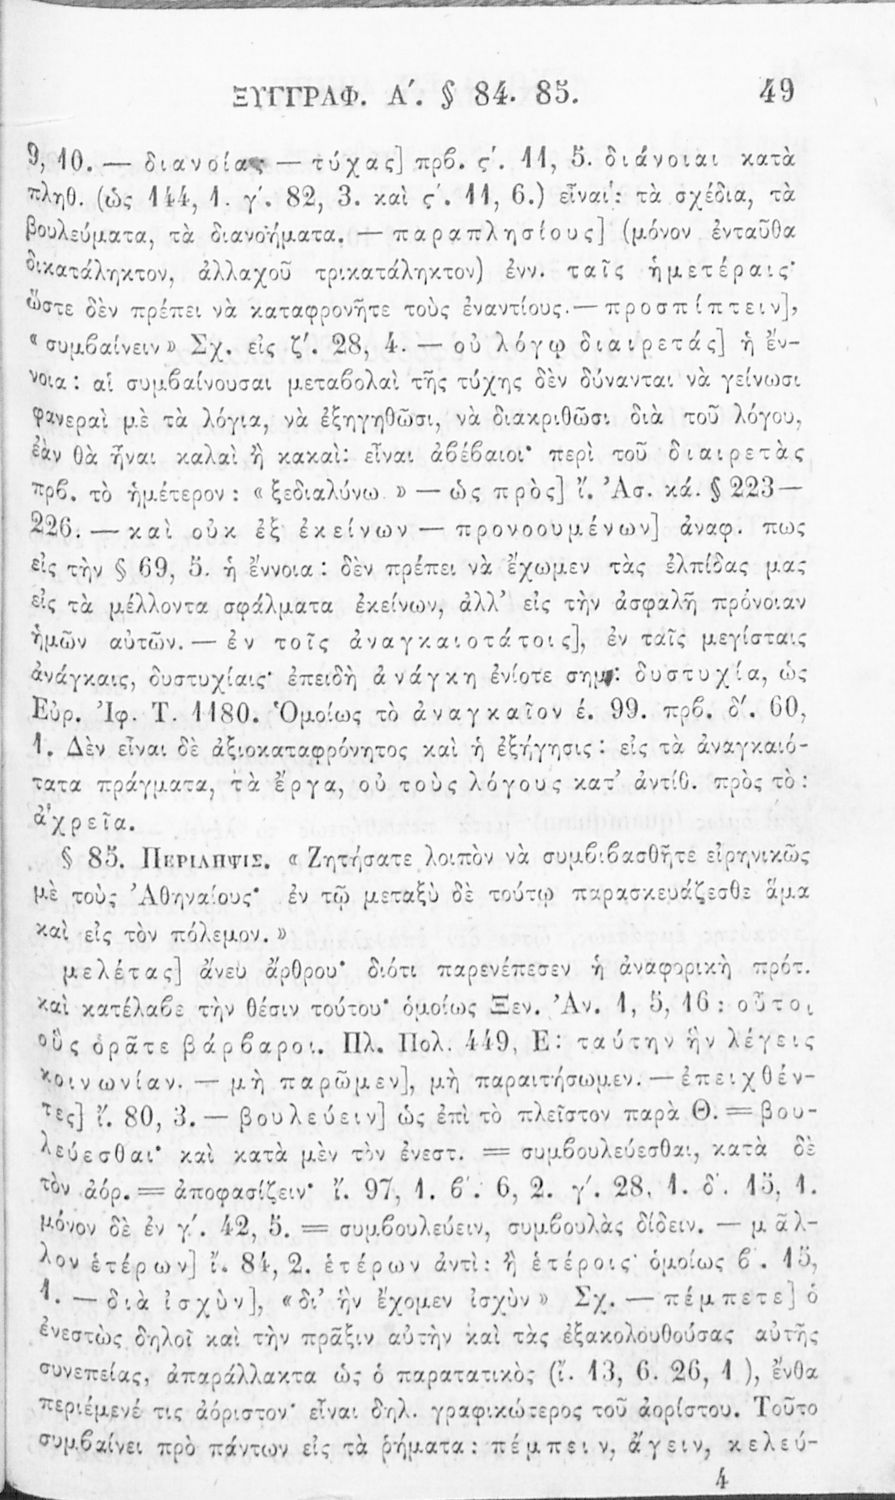 ΞΥΓΓΡΑΦ. Α΄. § 84. 85. 49
9, 10. — διανοίας — τύχας] πρβ. ς΄. 11, 5. διάνοιαι κατὰ
πληθ. (ὡς 144, 1. γ΄. 82, 3. καὶ ς΄. 11, 6.) εἶναι: τὰ σχέδια, τὰ
βουλεύματα, τὰ διανοήματα. — παραπλησίους] (μόνον ἐνταῦθα
δικατάληκτον, ἀλλαχοῦ τρικατάληκτον) ἐνν. ταῖς ἡμετέραις·
ὥστε δὲν πρέπει νὰ καταφρονῆτε τοὺς ἐναντίους.— προσπίπτειν],
«συμβαίνειν» Σχ. εἰς ζ΄. 28, 4. — οὐ λόγῳ διαιρετάς] ἡ ἔν-
νοια: αἱ συμβαίνουσαι μεταβολαὶ τῆς τύχης δὲν δύνανται νὰ γείνωσι
φανεραὶ μὲ τὰ λόγια, νὰ ἐξηγηθῶσι, νὰ διακριθῶσι διὰ τοῦ λόγου,
ἐὰν θὰ ἦναι καλαὶ ἢ κακαί: εἶναι ἀβέβαιοι· περὶ τοῦ διαιρετὰς
πρβ. τὸ ἡμέτερον: «ξεδιαλύνω» — ὡς πρὸς] ἴ. Ἀσ. κά. § 223—
226. — καὶ οὐκ ἐξ ἐκείνων — προνοουμένων] ἀναφ. πως
εἰς τὴν § 69, 5. ἡ ἔννοια: δὲν πρέπει νὰ ἔχωμεν τὰς ἐλπίδας μας
εἰς τὰ μέλλοντα σφάλματα ἐκείνων, ἀλλ' εἰς τὴν ἀσφαλῆ πρόνοιαν
ἡμῶν αὐτῶν. — ἐν τοῖς ἀναγκαιοτάτοις], ἐν ταῖς μεγίσταις
ἀνάγκαις, δυστυχίαις· ἐπειδὴ ἀνάγκη ἐνίοτε σημ: δυστυχία, ὡς
Εὐρ. Ἰφ. Τ. 1180. Ὁμοίως τὸ ἀναγκαῖον έ. 99. πρβ. δ΄. 60,
1. Δὲν εἶναι δὲ ἀξιοκαταφρόνητος καὶ ἡ ἐξήγησις: εἰς τὰ ἀναγκαιό-
τατα πράγματα, τὰ ἔργα, οὐ τοὺς λόγους κατ' ἀντίθ. πρὸς τὸ:
ἀχρεῖα.
§ 85. ΠΕΡΙΛΗΨΙΣ. «Ζητήσατε λοιπὸν νὰ συμβιβασθῆτε εἰρηνικῶς
μὲ τοὺς Ἀθηναίους· ἐν τῷ μεταξὺ δὲ τούτῳ παρασκευάζεσθε ἅμα
καὶ εἰς τὸν πόλεμον.»
μελέτας] ἄνευ ἄρθρου· διότι παρενέπεσεν ἡ ἀναφορικὴ πρότ.
καὶ κατέλαβε τὴν θέσιν τούτου· ὁμοίως Ξεν. Ἀν. 1, 5, 16: οὗτοι
οὓς ὁρᾶτε βάρβαροι. Πλ. Πολ. 449, Ε: ταύτην ἣν λέγεις
κοινωνίαν. — μὴ παρῶμεν], μὴ παραιτήσωμεν. — ἐπειχθέν-
τες] ἴ. 80, 3. — βουλεύειν] ὡς ἐπὶ τὸ πλεῖστον παρὰ Θ. = βου-
λεύεσθαι· καὶ κατὰ μὲν τὸν ἐνεστ. = συμβουλεύεσθαι, κατὰ δὲ
τὸν ἀόρ. = ἀποφασίζειν· ἴ. 97, 1. β΄. 6, 2. γ΄. 28, 1. δ΄. 15, 1.
μόνον δὲ ἐν γ΄. 42, 5. = συμβουλεύειν, συμβουλὰς δίδειν. — μᾶλ-
λον ἑτέρων] ἴ. 84, 2. ἑτέρων ἀντὶ: ἢ ἑτέροις· ὁμοίως β΄. 15,
1. — διὰ ἰσχὺν], «δι' ἣν ἔχομεν ἰσχὺν» Σχ. — πέμπετε] ὁ
ἐνεστὼς δηλοῖ καὶ τὴν πρᾶξιν αὐτὴν καὶ τὰς ἐξακολουθούσας αὐτῆς
συνεπείας, ἀπαράλλακτα ὡς ὁ παρατατικὸς (ἴ. 13, 6. 26, 1), ἔνθα
περιέμενέ τις ἀόριστον· εἶναι δηλ. γραφικώτερος τοῦ ἀορίστου. Τοῦτο
συμβαίνει πρὸ πάντων εἰς τὰ ῥήματα: πέμπειν, ἄγειν, κελεύ-
4